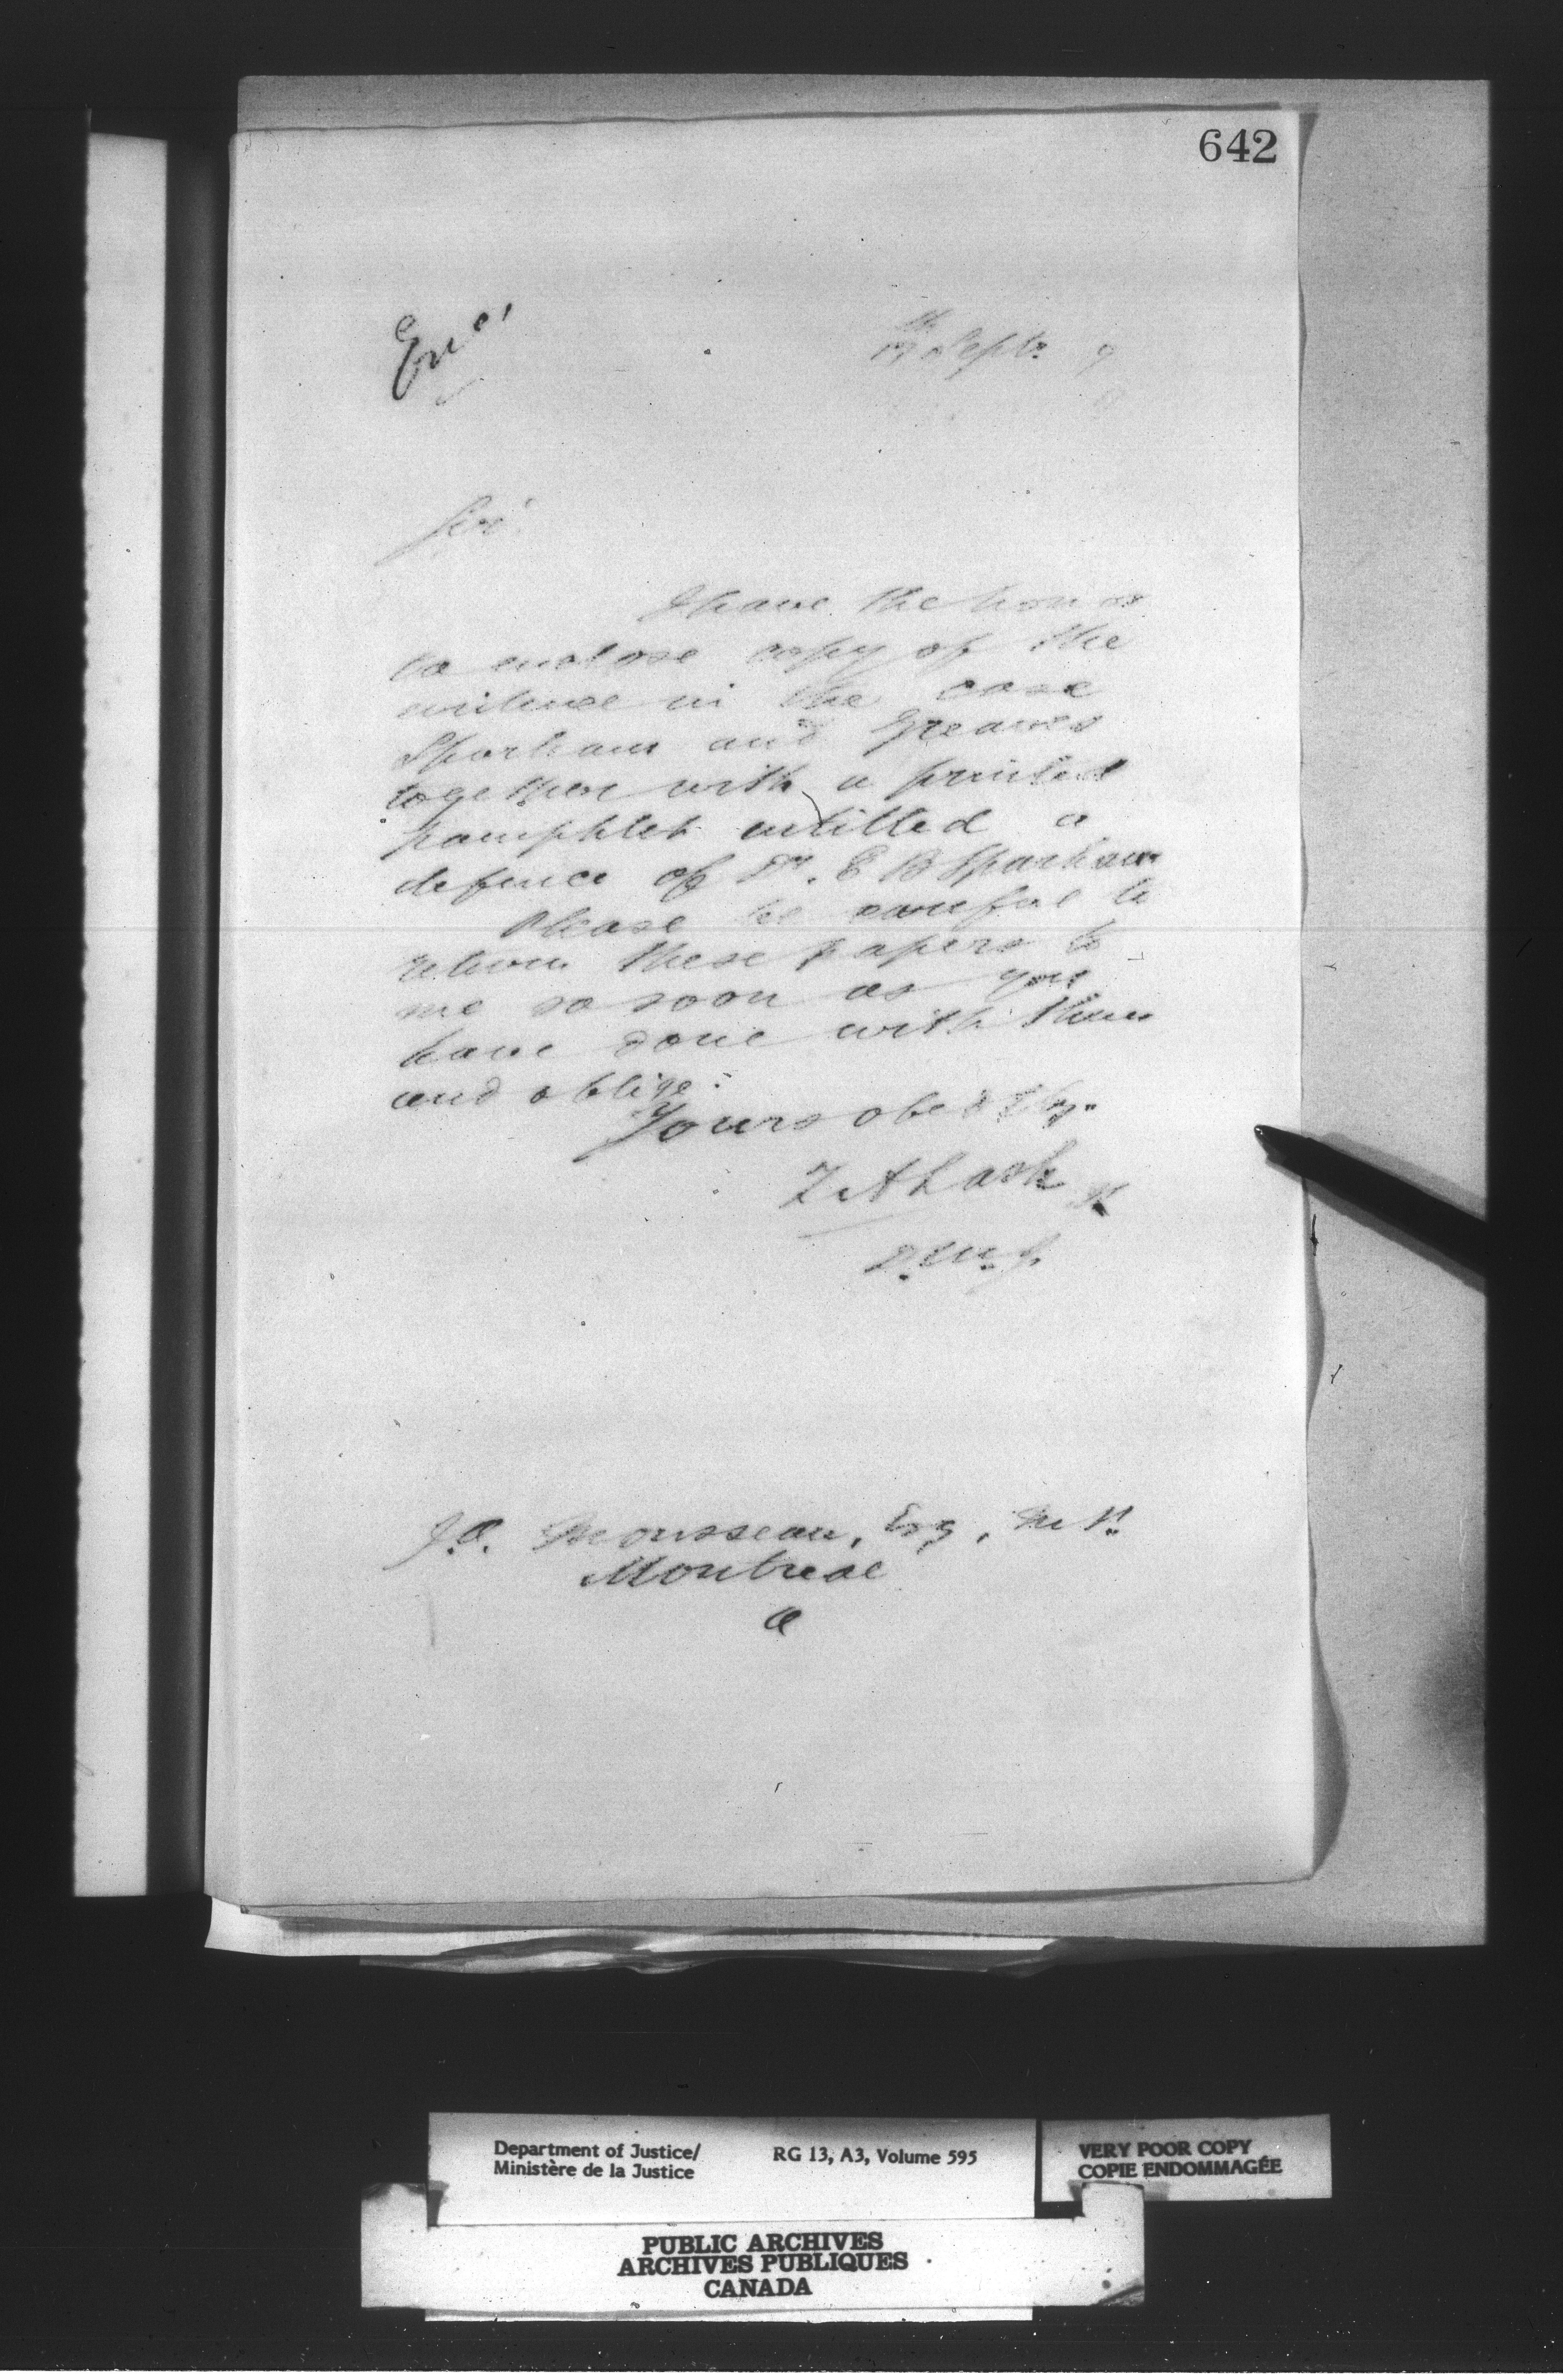 642
Encl
17th Septr 7
Sir
I have the honor
to enclose copy of the
evidence in the case
Sparham and Greaves
together with a printed
pamphlet entitled a
defence of Dr. E B Sparham
Please be careful to
return these papers to
me so soon as you
have done with them
and oblige
Yours obedtly.
Z A Lash
D.M.J.
J.A. Mousseau, Esq, M.P.
Montreal
a
Department of Justice/
Ministère de la Justice
RG 13, A3, Volume 595
VERY POOR COPY
COPIE ENDOMMAGÉE
PUBLIC ARCHIVES
ARCHIVES PUBLIQUES
CANADA